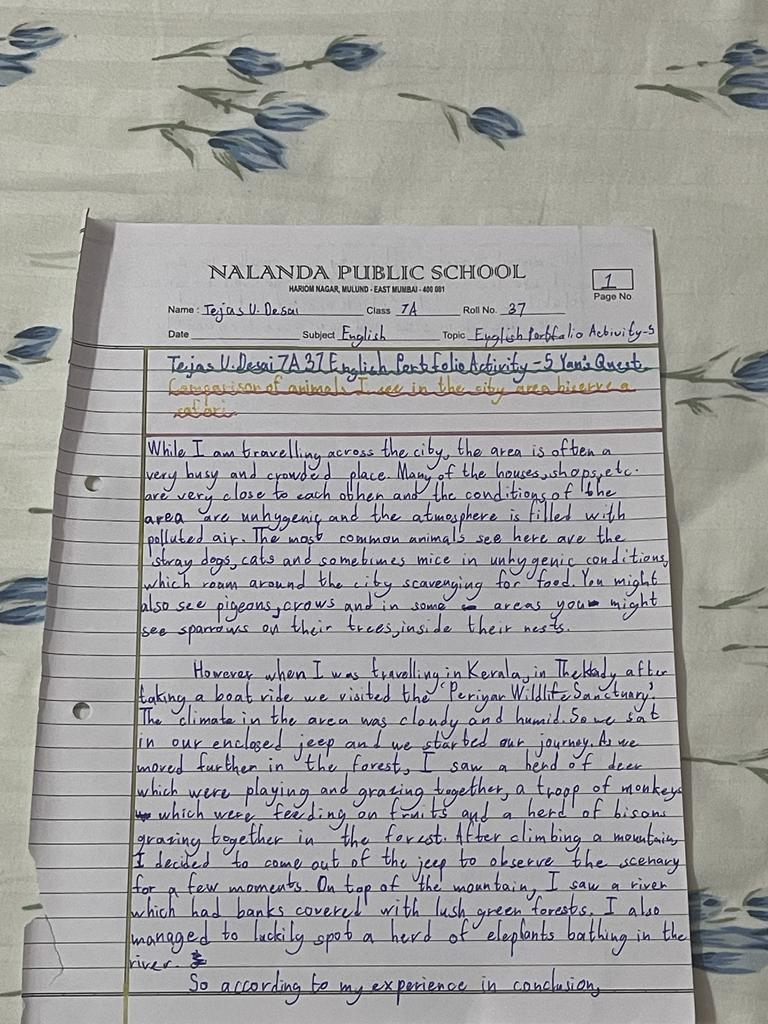 NALANDA PUBLIC SCHOOL
HARIOM NAGAR, MULUND - EAST MUMBAI - 400 081
1
Page No
Name : Tejas U. Desai Class 7A Roll No. 37
Date Subject English Topic English Portfolio Activity-5
Tejas U.Desai 7A 37 English Portfolio Activity-5 Yan's Quest
Comparison of animals I see in the city area a
safari.
While I am travelling across the city, the area is often a
very busy and crowded place. Many of the houses, shops, etc.
are very close to each other and the conditions of the
area are unhygenic and the atmosphere is filled with
polluted air. The most common animals see here are the
stray dogs, cats and sometimes mice in unhygenic conditions,
which roam around the city scavenging for food. You might
also see pigeons, crows and in some areas you might
see sparrows on their trees, inside their nests.
However when I was travelling in Kerala, in after
taking a boat ride we visited the 'Periyar Wildlife Sanctuary'.
The climate in the area was cloudy and humid. So we sat
in our enclosed jeep and we started our journey. As we
moved further in the forest, I saw a herd of deer
which were playing and grazing together, a troop of monkeys
which were feeding on fruits and a herd of bisons
grazing together in the forest. After climbing a mountain,
I decided to come out of the jeep to observe the scenary
for a few moments. On top of the mountain, I saw a river
which had banks covered with lush green forests. I also
managed to luckily spot a herd of elephants bathing in the
river.
So according to my experience in conclusion,